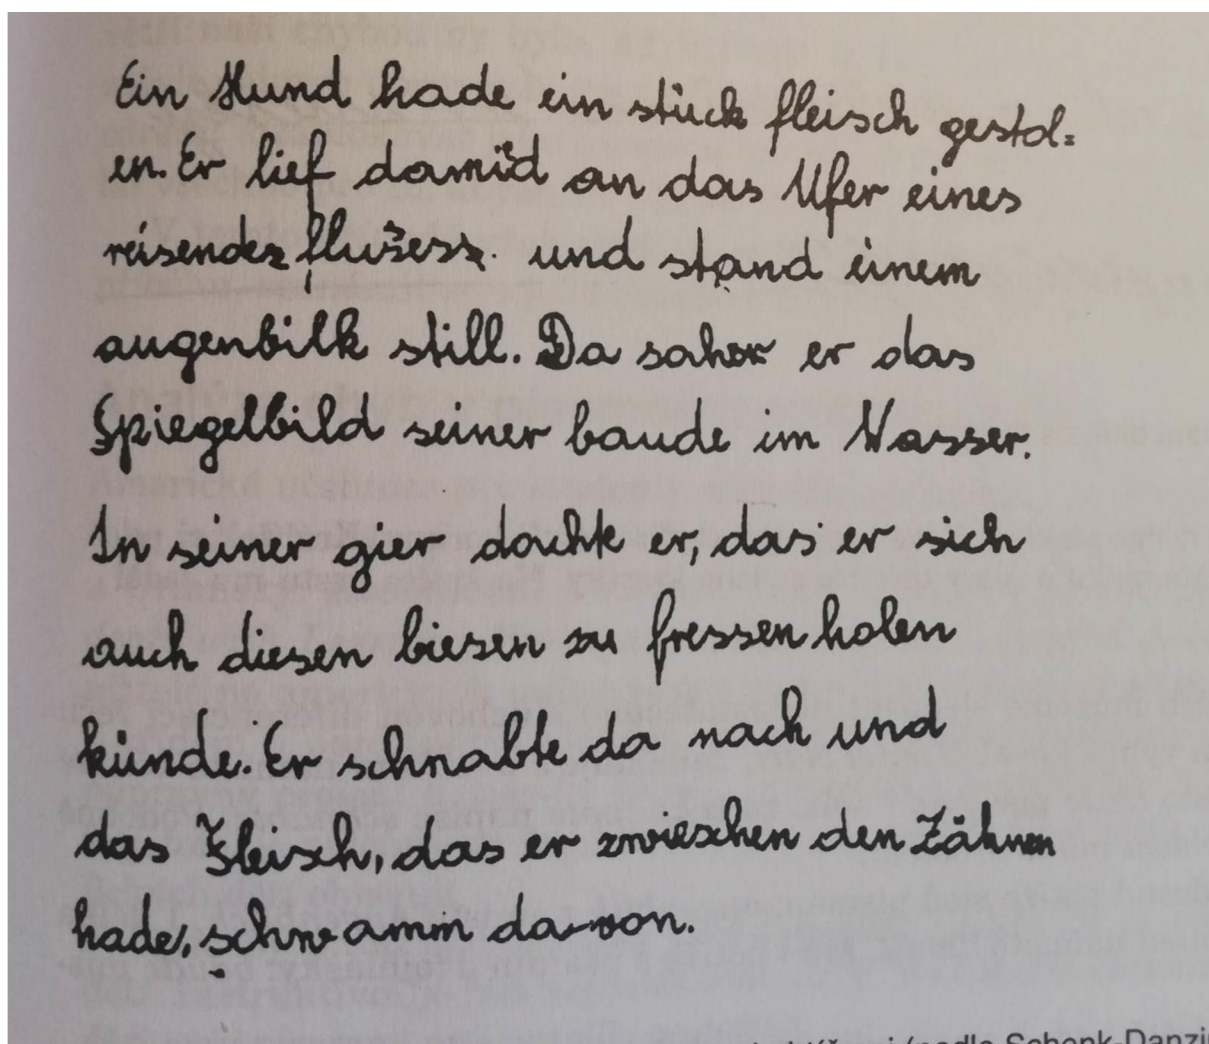 Ein Hund hade ein stück fleisch gestol=
en. Er lief damid an das Ufer eines
reisendes flusess. und stand einem
augenbilk still. Da sahr er das
Spiegelbild seiner baude im Wasser.
In seiner gier dachte er, das er sich
auch diesen biesen zu fressen holen
künde. Er schnabte da nach und
das Fleisch, das er zwieschen den Zähnen
hade, schwamm da von.
(podle Schenk-Danzi